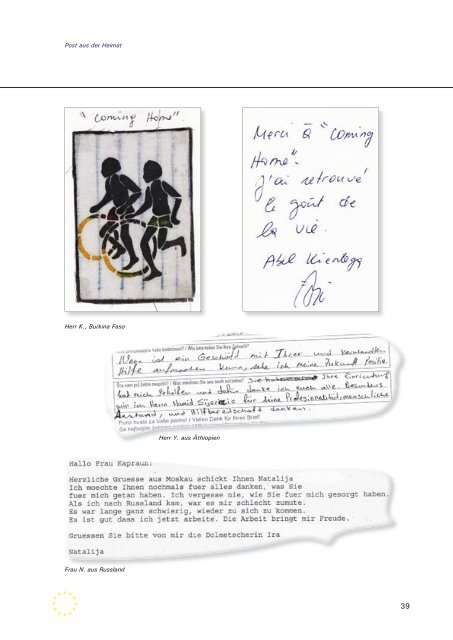 Post aus der Heimat
"Coming Home".
Merci à "Coming
Home".
J'ai retrouvé
le goût de
la vie.
Abel
Herr K., Burkina Faso
ist ein Geschäft mit Ihrer und
Hilfe aufmachen kann, sehe ich meine Zukunft Positiv
Ihre Einrichtung
hat mich geholfen und dafür danke ich euch alle. Besonders
will ich Herrn Hamid für seine menschliche
Anstand, und Hilfbereitschaft danken.
/ Vielen Dank für Ihren Brief!
Herr Y. aus Äthiopien
Hallo Frau Kapraun:
Herzliche Gruesse aus Moskau schickt Ihnen Natalija
Ich moechte Ihnen nochmals fuer alles danken, was Sie
fuer mich getan haben. Ich vergesse nie, wie Sie fuer mich gesorgt haben.
Als ich nach Russland kam, war es mir schlecht zumute.
Es war lange ganz schwierig, wieder zu sich zu kommen.
Es ist gut dass ich jetzt arbeite. Die Arbeit bringt mir Freude.
Gruessen Sie bitte von mir die Dolmetscherin Ira
Natalija
Frau N. aus Russland
39